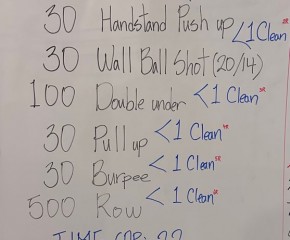 30 Handstand Push up <1 Clean*
30 Wall Ball Shot (20/14)
100 Double under <1 Clean*
30 Pull up <1 Clean*
30 Burpee <1 Clean*
500 Row <1 Clean*
TIME CAP: 22